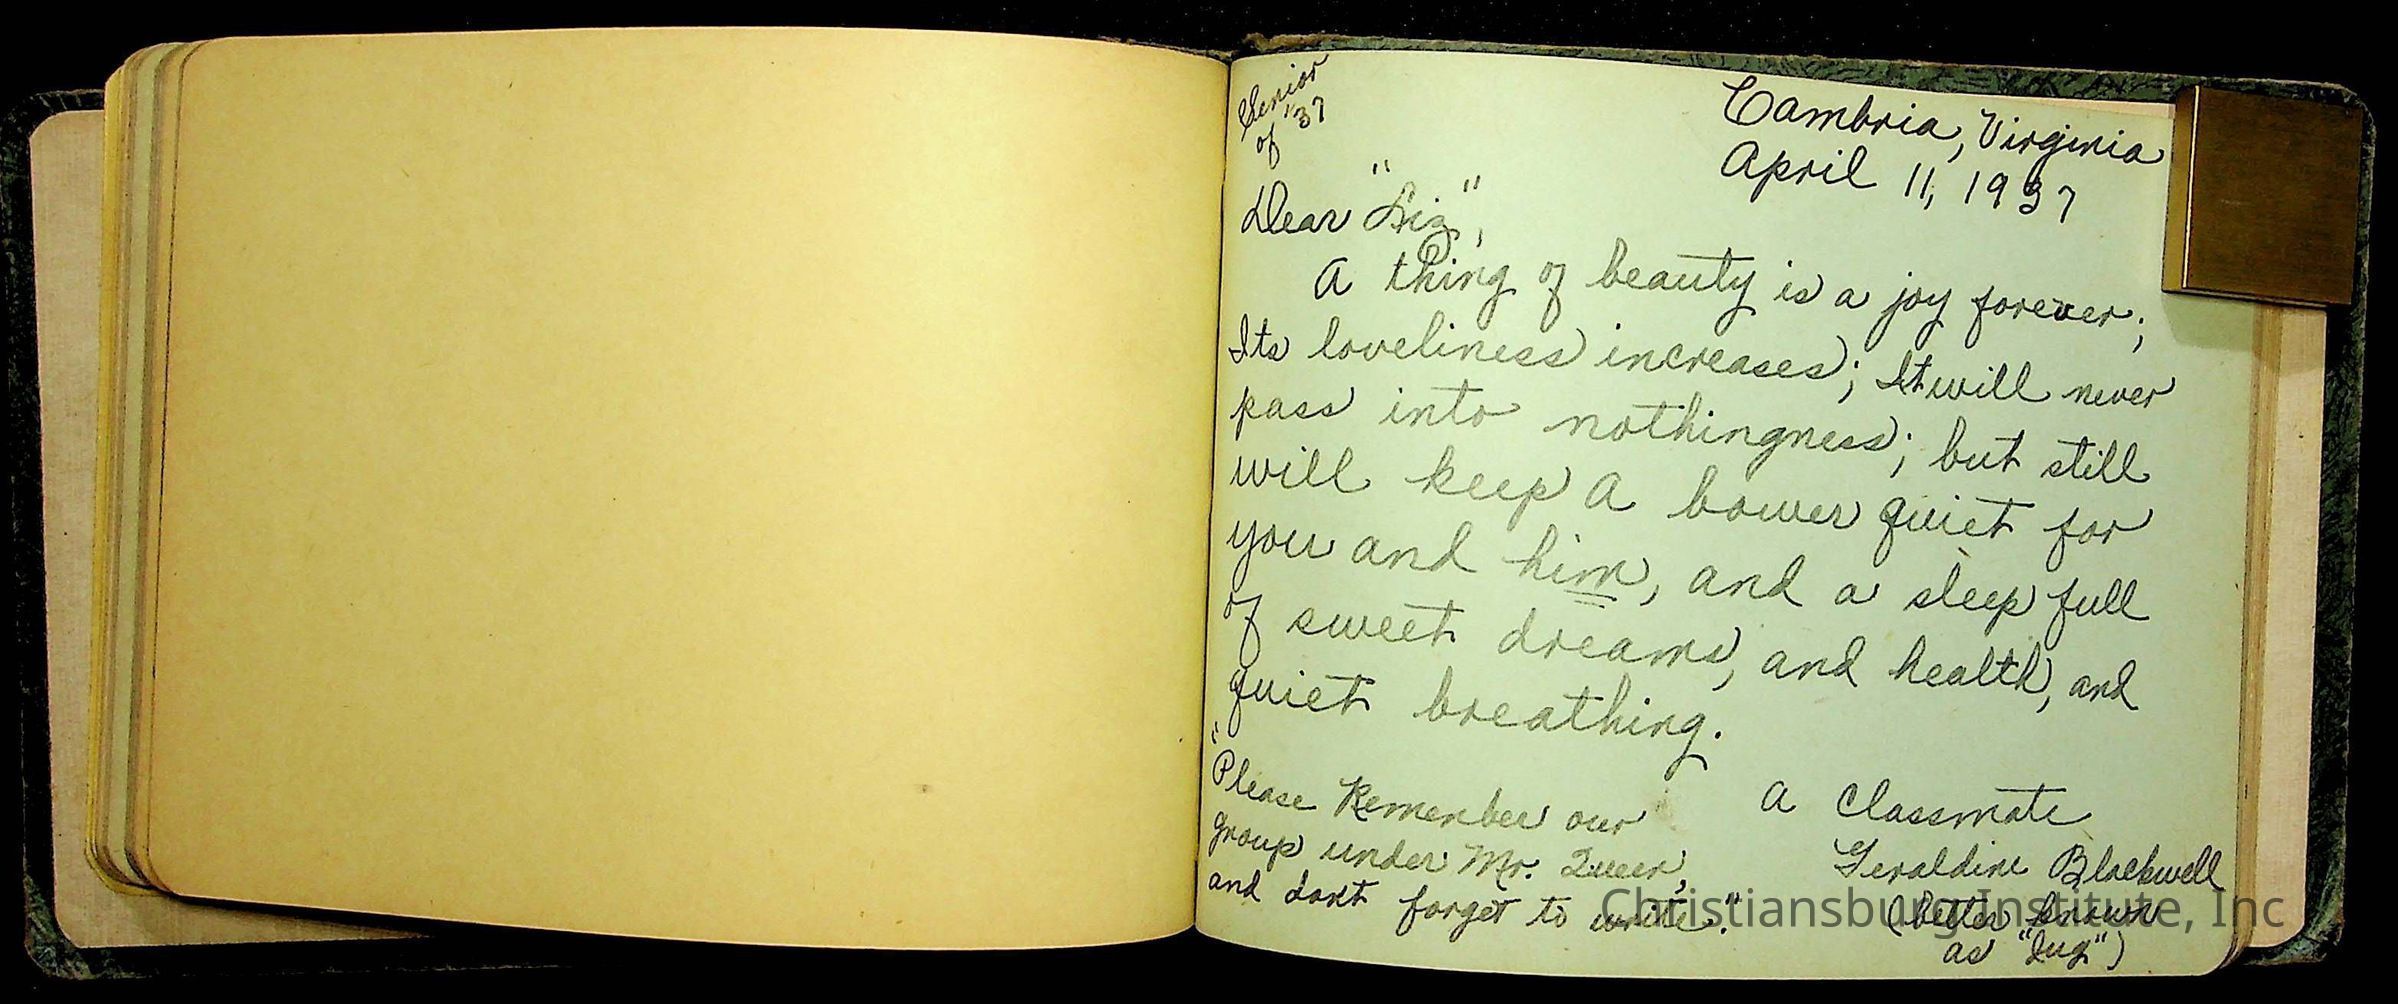 Senior
of '37
Cambria, Virginia
April 11, 1937
Dear "Liz",
A thing of beauty is a joy forever;
Its loveliness increases; It will never
pass into nothingness; but still
will keep A bower quiet for
you and him, and a sleep full
of sweet dreams, and health, and
quiet breathing.
"Please Remember our
group under Mr. Queer,
and don't forget to write."
A Classmate
Geraldine Blackwell
(better known
as "Jug")
Christiansburg Institute, Inc